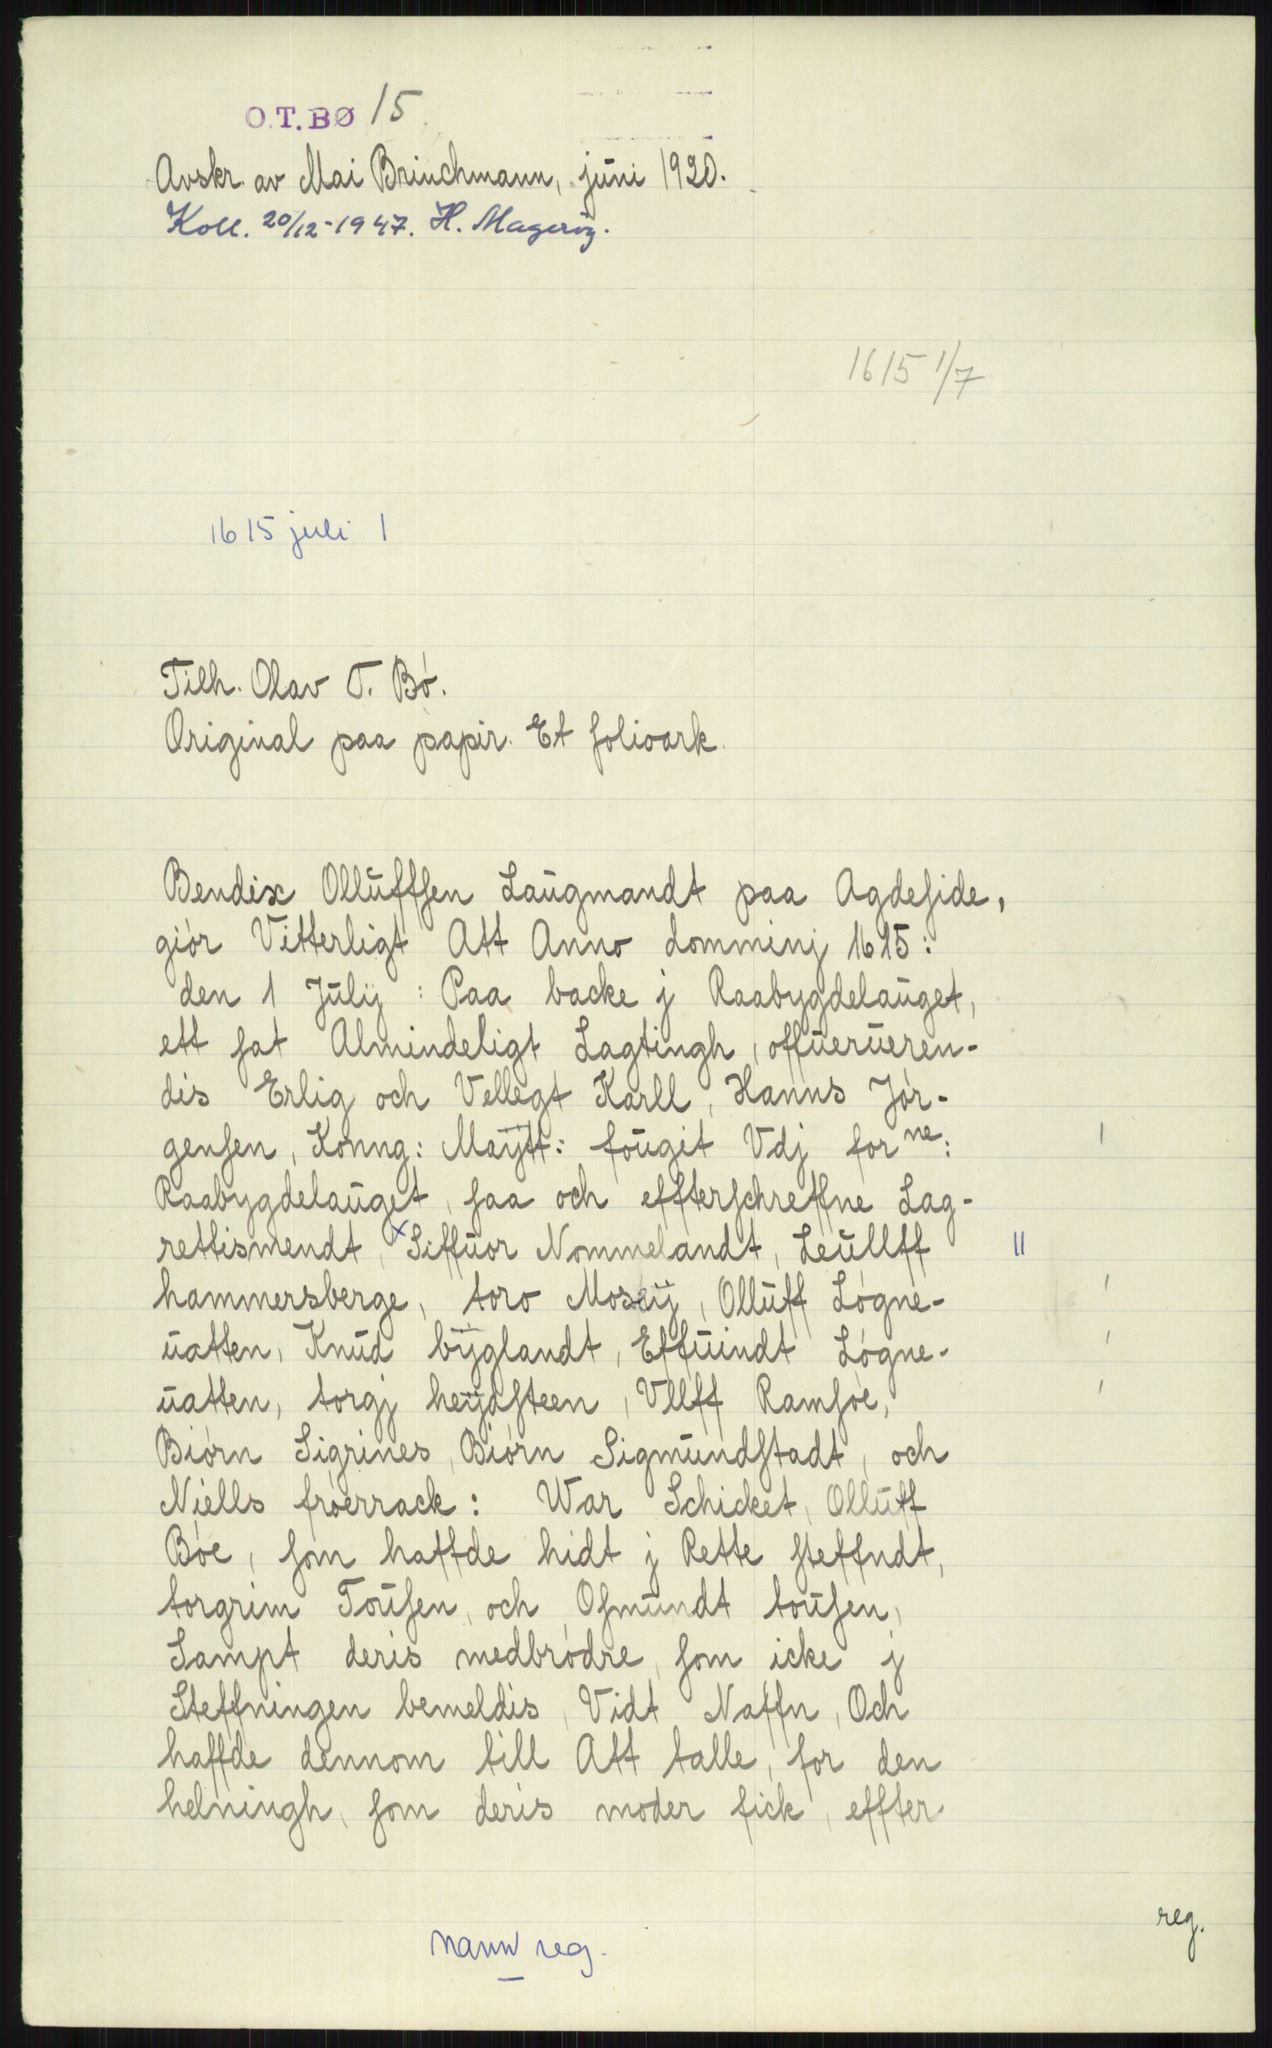 O.T.BØ 15.
Avskr. av Mai Brinchmann, juni 1920.
Koll. 20/12-1947. H. Magerøy.
1615 1/7
1615 juli 1
Tilh. Olav T. Bø.
Original paa papir. Et folioark.
Bendix Olluffsen Laugmandt paa Agdeside,
giør Vitterligt Att Anno domminj 1615:
den 1 Julij : Paa backe j Raabygdelauget,
ett sat Almindeligt Lagtingh, offuerueren-
dis Erlig och Vellegt Karll, Hanns Jør-
gensen, Konng: Maÿtt: fougit Vdj for ne:
Raabygdelauget, saa och effterschreffne Lag-
rettismendt, x Siffuor Nommelandt, Leullff
hammersberge, toro Moseÿ, Olluff Løgne-
uatten, Knud bÿglandt, Effuindt Løgne-
uatten, torgj heÿdsteen, Vllff Ramsøe,
Biørn Sigrines, Biørn Sigmundstadt, och
Niells frøerrack: War Schicket, Olluff
Bøe, som haffde hidt j Rette steffndt,
torgrim Tousen, och Osmundt tousen,
Sampt deris medbrødre, som icke j
Steffningen bemeldis, Vidt Naffn, Och
haffde dennom till Att talle, for den
helningh, som deris moder fick, effter
reg.
navn reg.